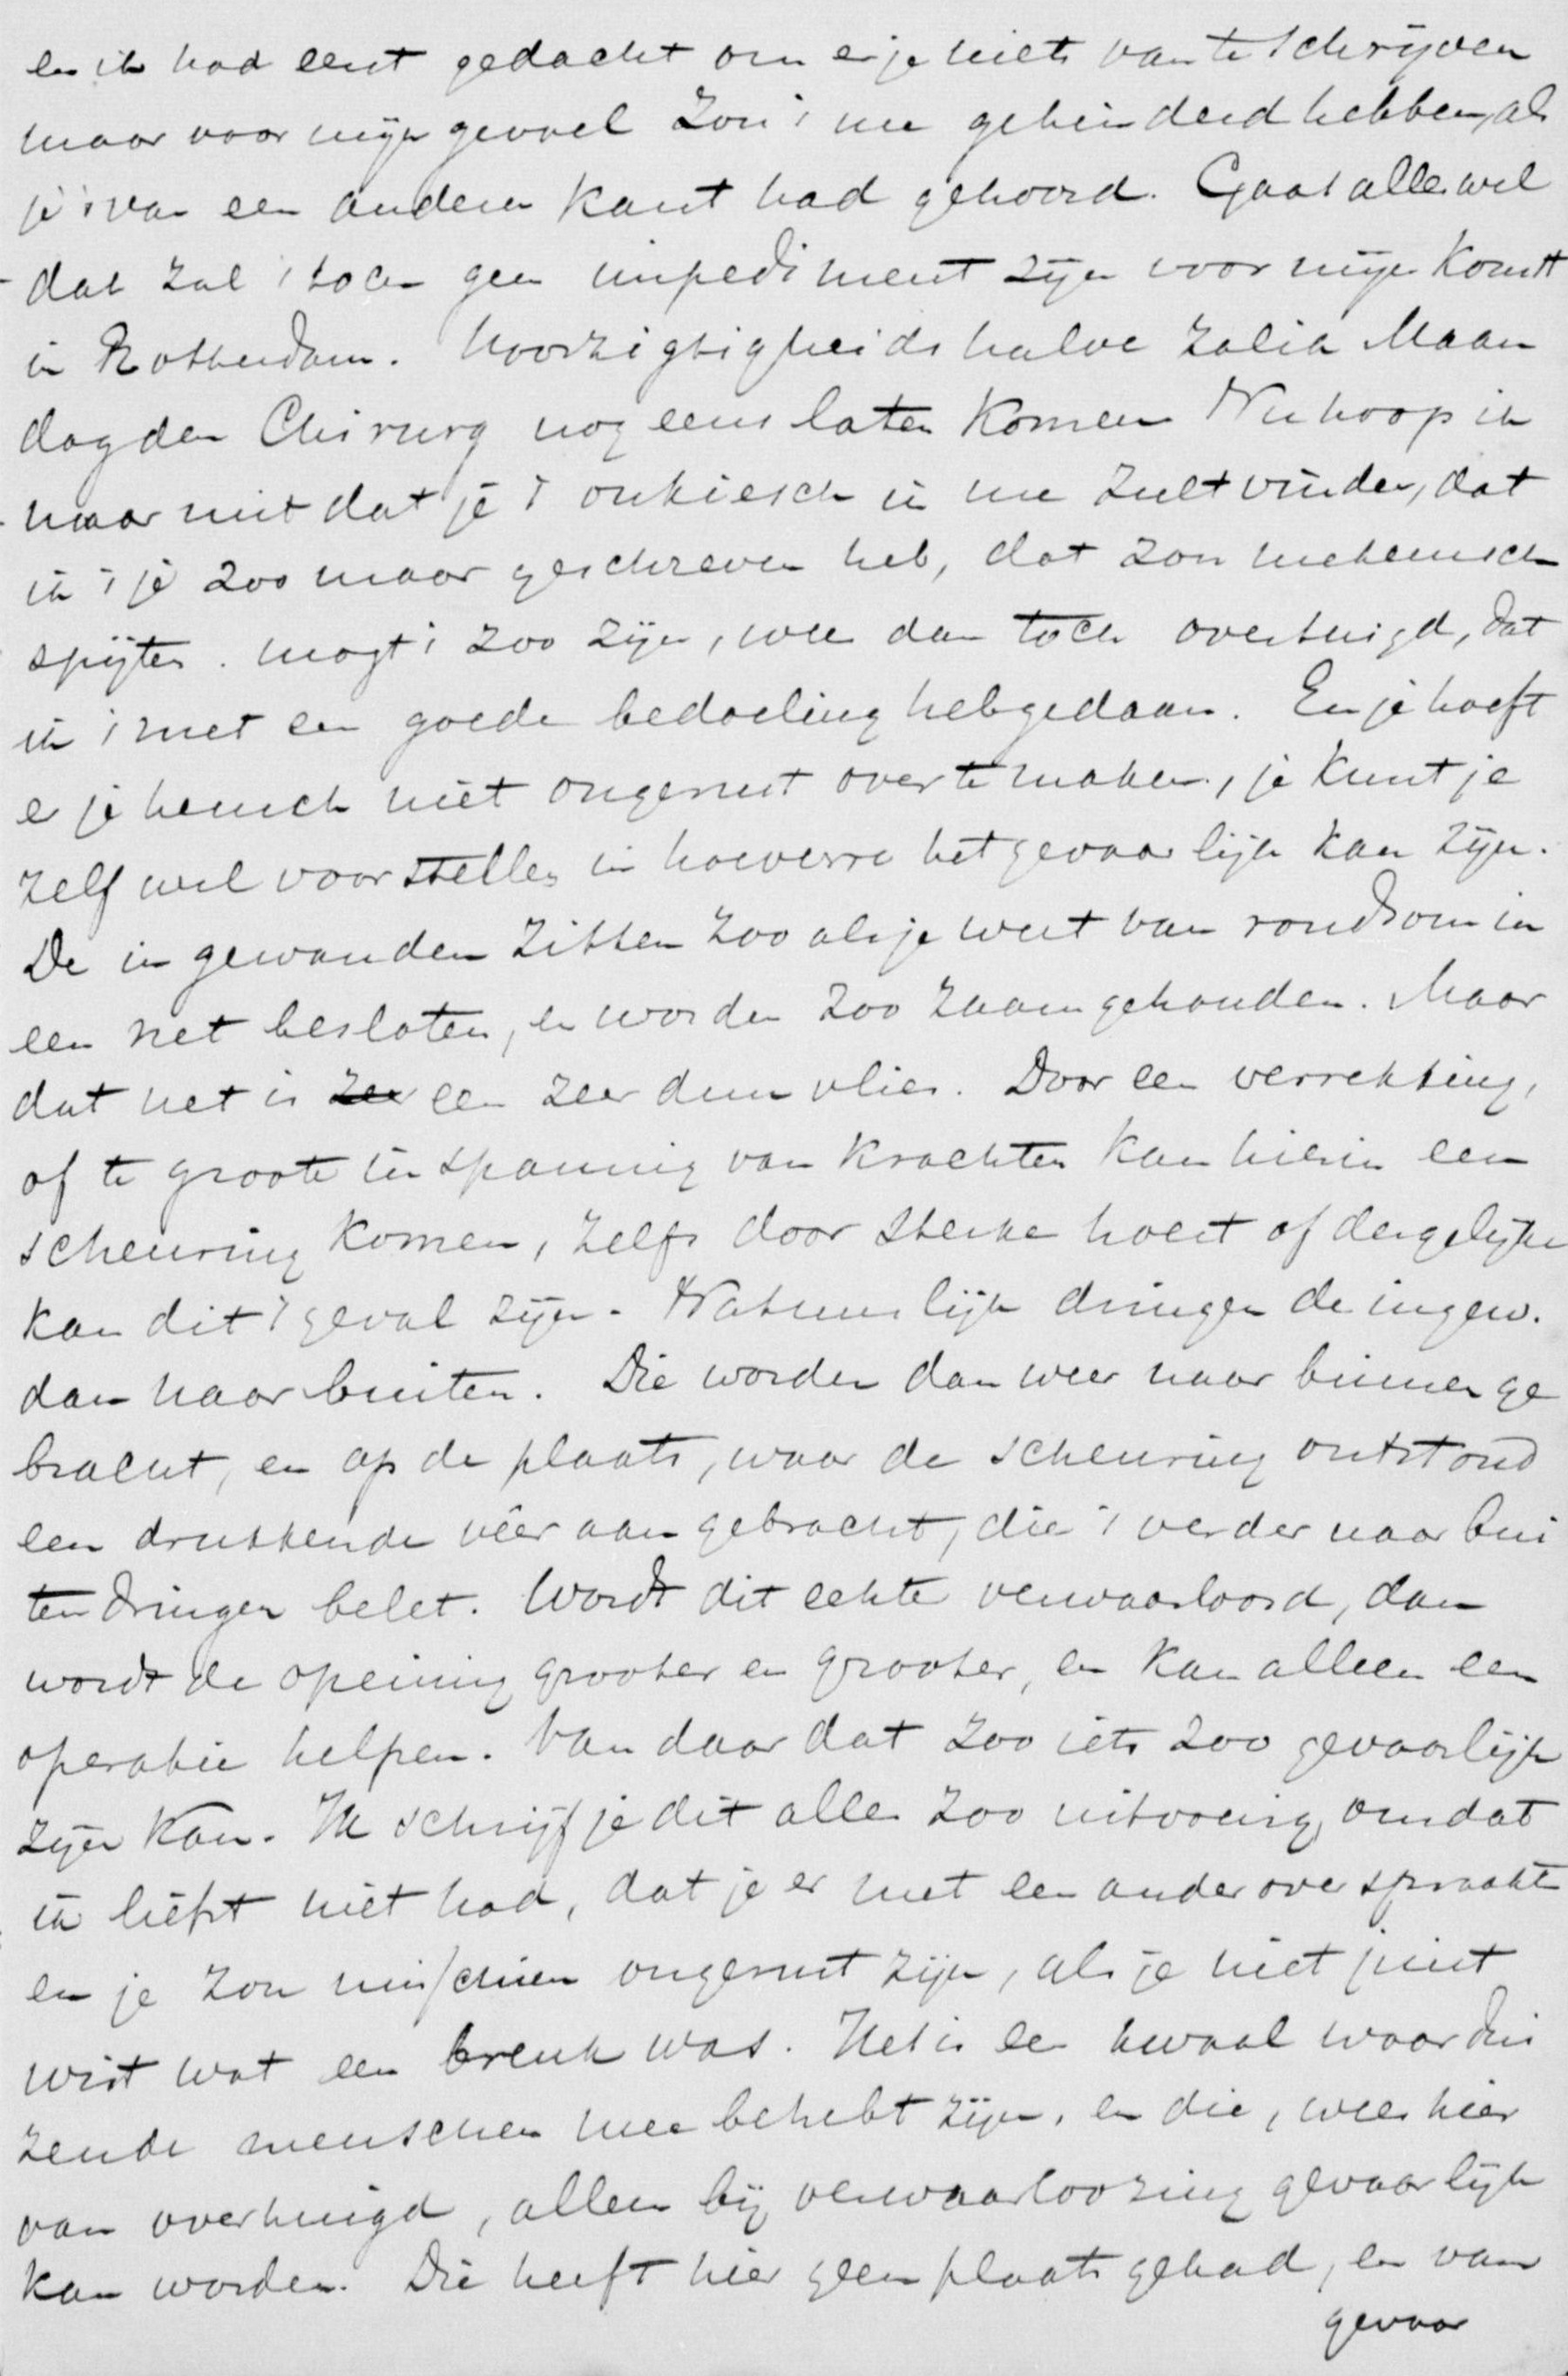 en ik had eerst gedacht om er je niets van te schrijven
maar voor mijn gevoel zou 't me gehinderd hebben, als
je 't van een anderen kant had gehoord. Gaat alles wel
dat zal 't toch geen impediment zijn voor mijn komst
in Rotterdam. Voorzigtigheidshalve zal ik Maan
dag den Chirurg nog eens laten komen Nu hoop ik
maar niet dat je 't onkiesch in me zult vinden, dat
ik 't je zoo maar geschreven heb, dat zou me heusch
spijten. mogt 't zoo zijn, wees dan toch overtuigd, dat
ik 't met een goede bedoeling heb gedaan. En je hoeft
er je heusch niet ongerust over te maken, je kunt je
zelf wel voorstellen in hoeverre het gevaarlijk kan zijn.
De ingewanden zitten zooals je weet van rondsom in
een net besloten, en worden zoo zaamgehouden. Maar
dat net is zeer een zeer dun vlies. Door een verrekking,
of te groote inspanning van krachten kan hierin een
scheuring komen, zelfs door sterke hoest of dergelijke
kan dit 't geval zijn. Natuurlijk dringen de ingew.
dan naar buiten. Die worden dan weer naar binnen ge
bracht, en op de plaats, waar de scheuring ontstond
een drukkende véér aangebracht, die 't verder naar bui
ten dringen belet. Wordt dit echte verwaarloosd, dan
wordt de opening grooter en grooter, en kan alleen een
operatie helpen. Van daar dat zoo iets zoo gevaarlijk
zijn kan. Ik schrijf je dit alles zoo uitvoerig, omdat
ik liefst niet had, dat je er met een ander over spraakt
en je zou misschien ongerust zijn, als je niet juist
wist wat een breuk was. Het is een kwaal waar dui
zende menschen mee behebt zijn, en die, wees hier
van overtuigd, alleen bij verwaarloozing gevaarlijk
kan worden. Die heeft hier geen plaats gehad, en van
gevaar